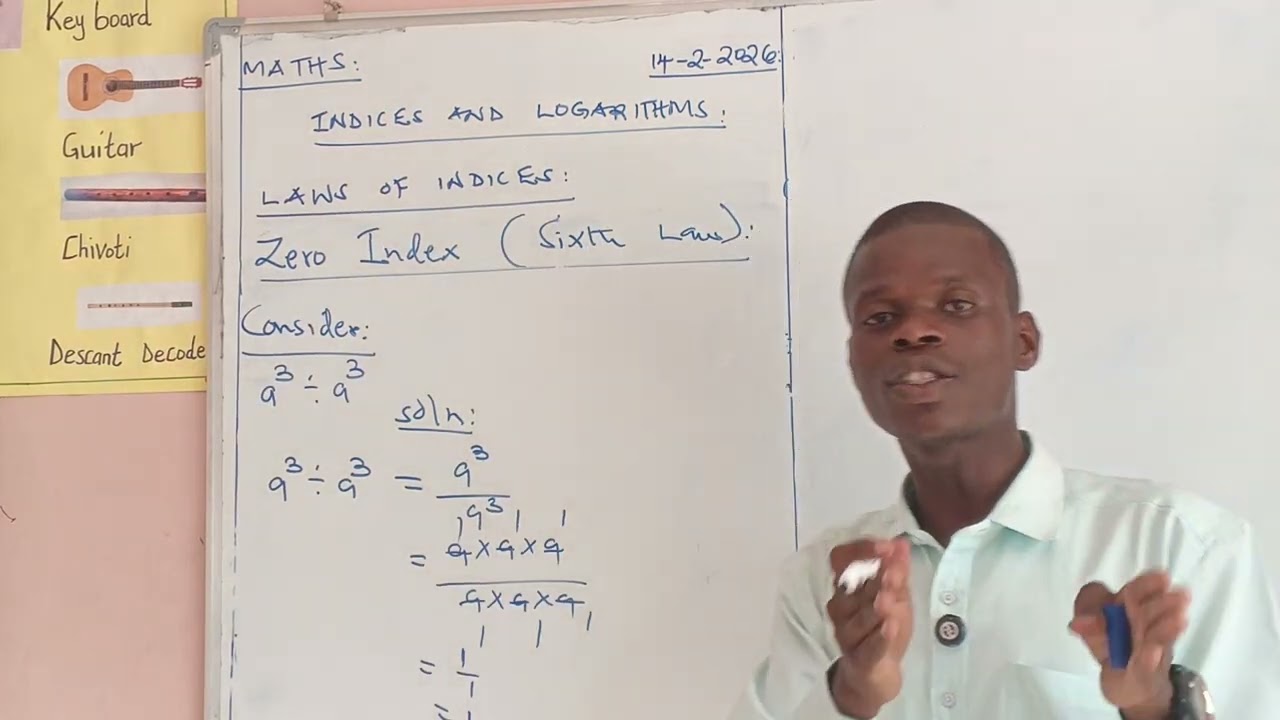 Key board
Guitar
Chivoti
Descant Decode
MATHS:
14-2-2026:
INDICES AND LOGARITHMS:
LAWS OF INDICES:
Zero Index (Sixth Law):
Consider:
a³ ÷ a³
soln:
a³ ÷ a³ = a³
a³
1 1 1
= a × a × a
a × a × a
1 1 1
= 1
1
= 1